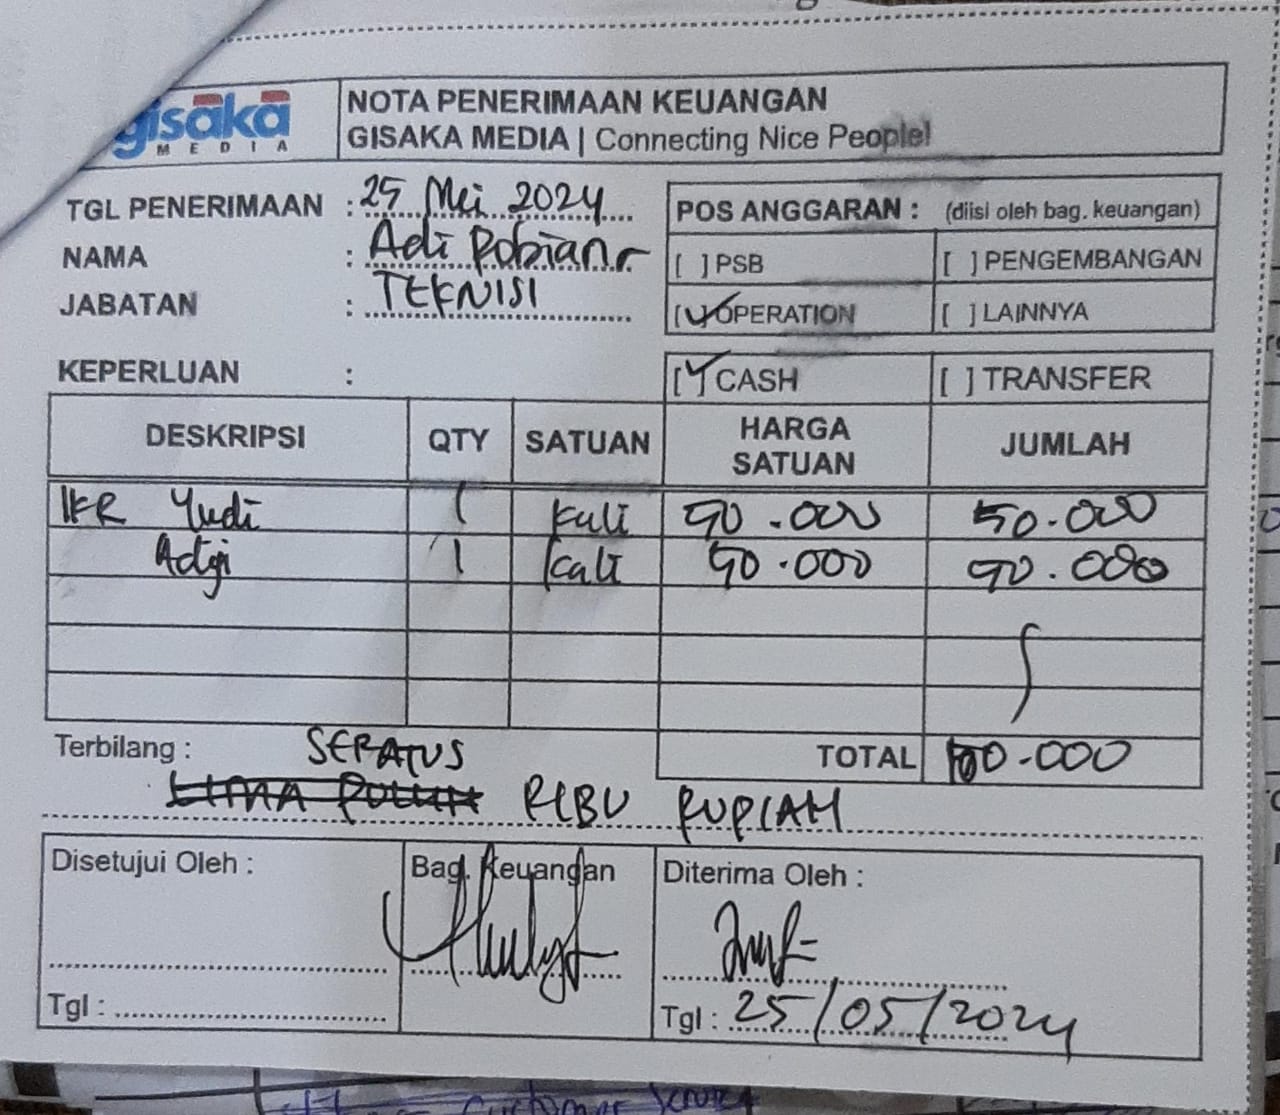 gisaka
MEDIA
NOTA PENERIMAAN KEUANGAN
GISAKA MEDIA | Connecting Nice People!
TGL PENERIMAAN : 25 Mei 2024
NAMA : Adi Pobian
JABATAN : TEKNISI
POS ANGGARAN : (diisi oleh bag. keuangan)
[ ] PSB [ ] PENGEMBANGAN
[✓] OPERATION [ ] LAINNYA
KEPERLUAN :
[✓] CASH [ ] TRANSFER
DESKRIPSI QTY SATUAN HARGA SATUAN JUMLAH
IKR Yudi 1 kali 50.000 50.000
Adgi 1 kali 50.000 50.000
Terbilang : SERATUS TOTAL 100.000
LIMA PULUH RIBU RUPIAH
Disetujui Oleh : Bag. Keuangan Diterima Oleh :
Tgl : Tgl : 25/05/2024
Customer